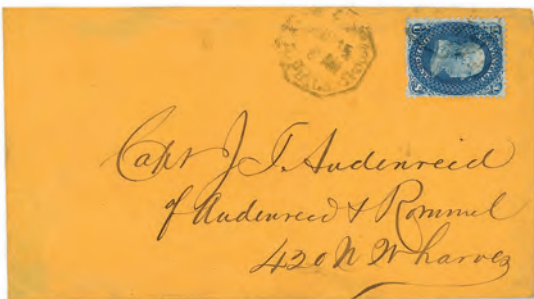 Capt J. T. Audenreid
of Audenreid & Rommel
420 N Wharves